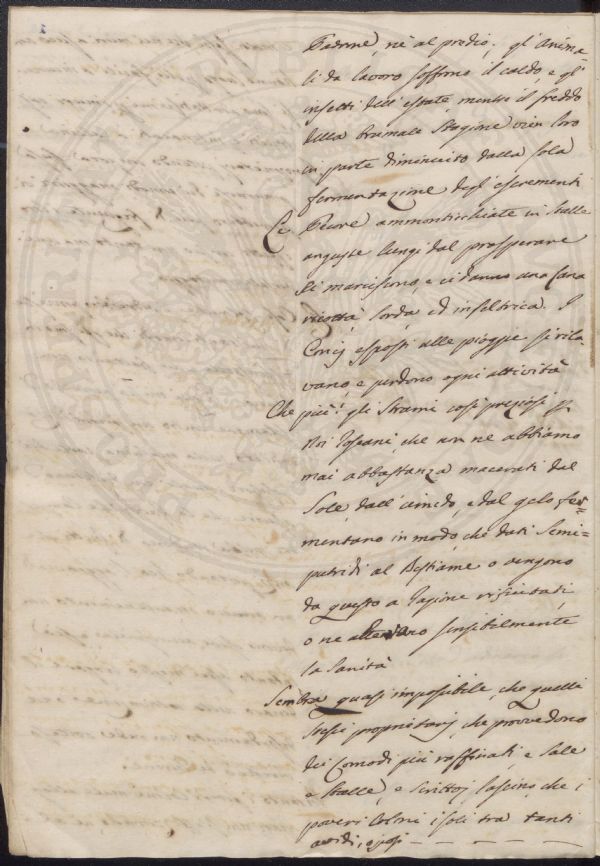 Padrone, nè al predio; gl'Anima-
li da lavoro soffrono il caldo, e gl'
insetti dell'estate, mentre il freddo
della brumale Stagione vien loro
in parte diminuito dalla sola
fermentazione degl'escrementi
Le Pecore ammonticchiate in stalle
anguste lungi dal prosperare
si marciscono, e ci danno una lana
ricotta, lorda, ed infeltrica. I
Concj esposti alle pioggie si rila-
vano, e perdono ogni attività
Che più! gli Strami così preziosi p
Noi Toscani, che non ne abbiamo
mai abbastanza macerati dal
Sole, dall'umido, e dal gelo fer=
mentano in modo, che dati Semi=
putridi al Bestiame o vengono
da questo a ragione rifiutati,
o ne alterano sensibilmente
la Sanità
Sembra quasi impossibile, che quelli
Stessi proprietarj, che provvedono
dei Comodi più raffinati, e Sale
e Stalle, e Scrittoj lascino, che i
poveri Coloni isoli tra tanti